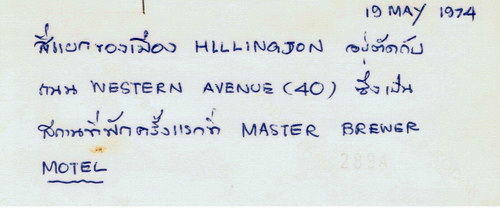 19 MAY 1974
สี่แยกของเมือง HILLINGDON อยู่ติดกับ
ถนน WESTERN AVENUE (40) ซึ่งเป็น
สถานที่พักครั้งแรกที่ MASTER BREWER
MOTEL
289A